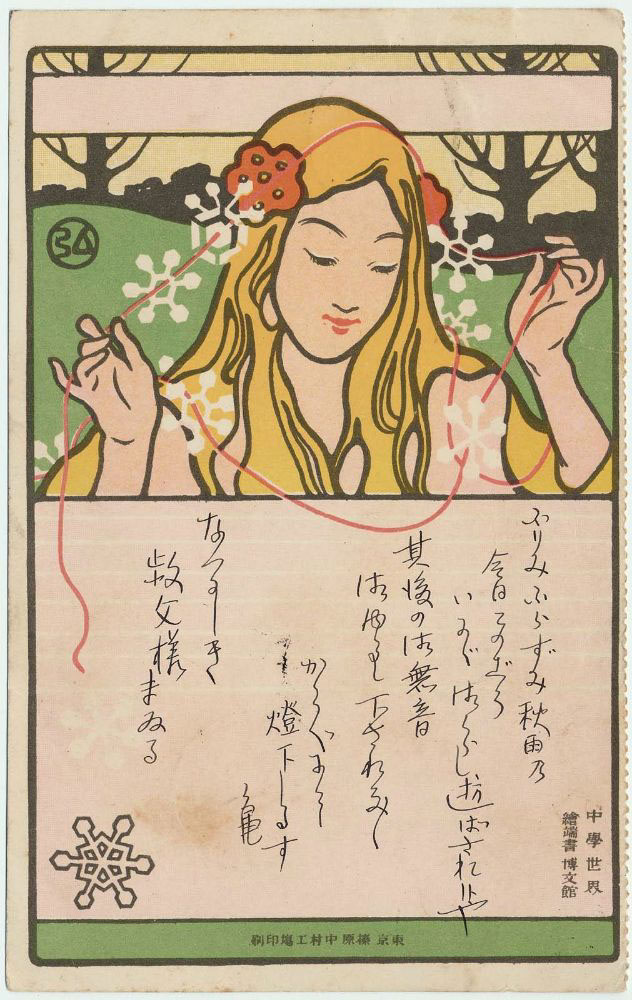 ふりみふらずみ秋雨乃
今日このごろ
いかゞ御くらし遊ばされ候や
其後の御無音
御ゆるし下されたく
燈下しるす
亀
なつかしき
叔父様まゐる
中學世界
繪端書 博文館
東京 榛原 中村工塲印刷